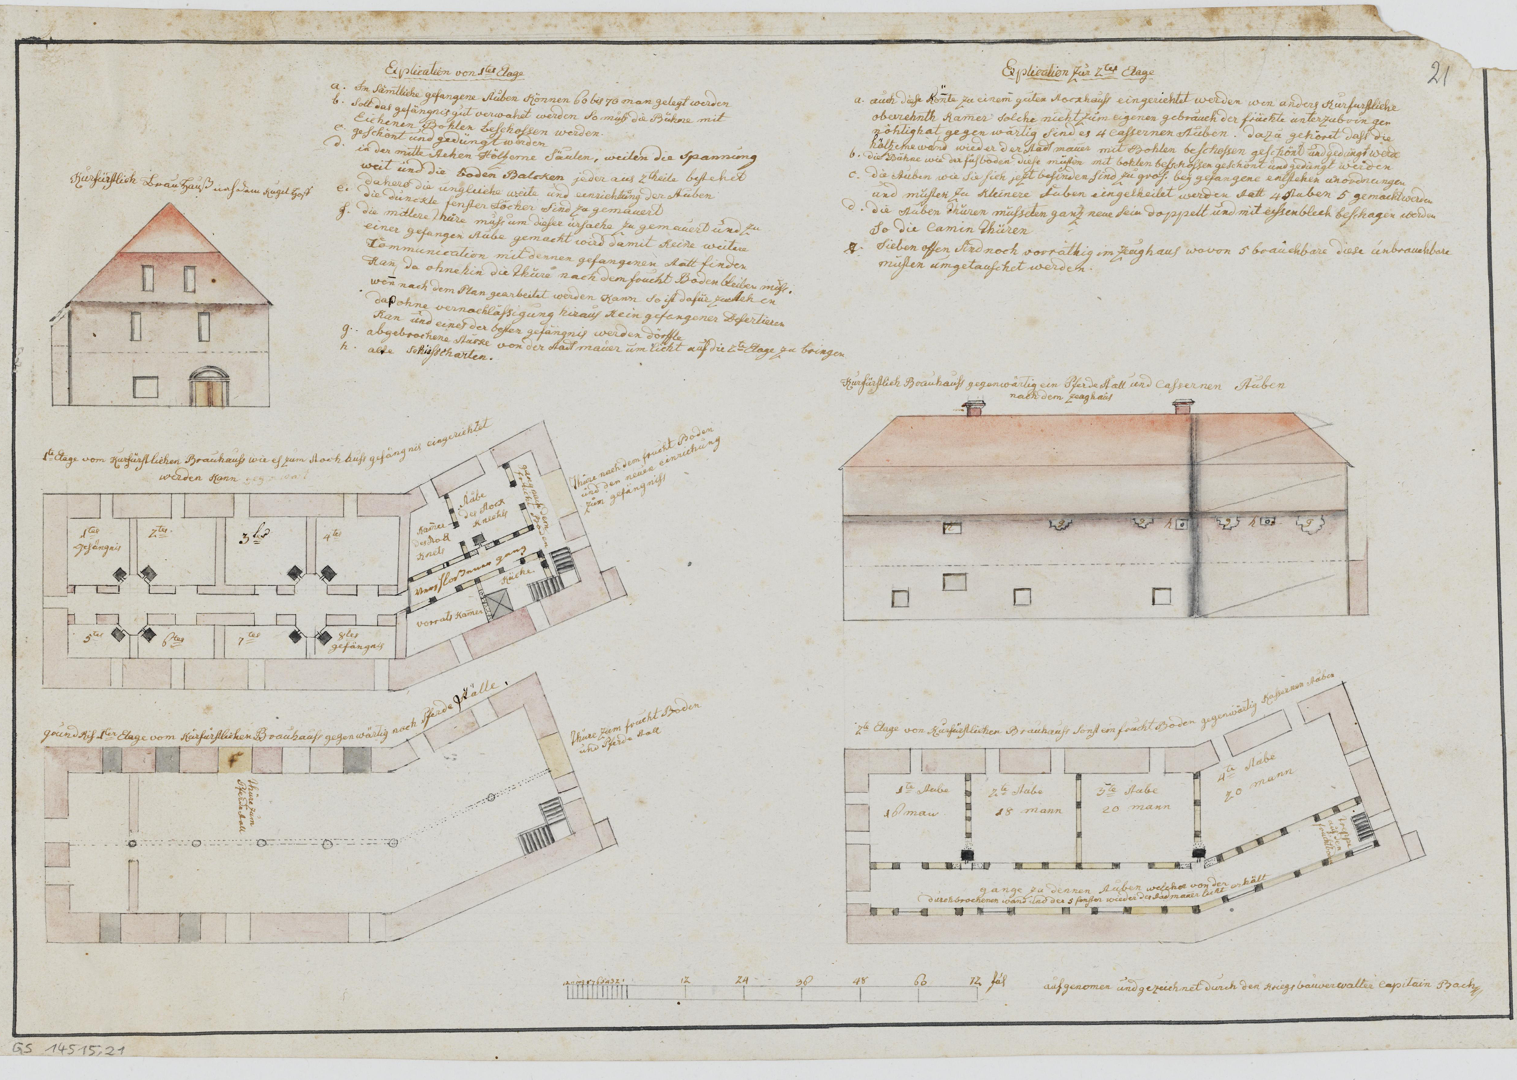 21
Explication von 1ter Etage
a. In sämtliche gefangene Stuben können 60 bis 70 man gelegt werden
b. Soll das gefängnis gut verwahrt werden so muß die Bühne mit
Eichenen Bohlen beschossen werden.
c. geschont und gedüngt werden
d. in der mitte stehen Hölserne Säulen, weilen die Spannung
weit und die Boden Balcken jeder aus 2 theile bestehet
dahero die ungleiche weite und einrichtung der Stuben
e. die dunckte fenster Löcher sind zu gemauert
f. die mittlere thüre muß um dieser ursache zu gemauert und zu
einer gefangen Stube gemacht wird damit keine weitere
Communication mit denen gefangenen statt finden
kan, da ohnehin die thüre nach dem frucht Boden bleiben muß.
wen nach dem Plan gearbeitet werden kann so ist dafür zu stehen
daß ohne vernachläßigung hieraus kein gefangener Desertieren
kan und eines der besten gefängnis werden dörfte
g. abgebrochene stücke von der stadt mauer um licht auf die 2te Etage zu bringen
h. alte schießscharten.
Explication für 2ter Etage
a. auch diese könte zu einem guten stockhauß eingerichtet werden wen anders Kurfürstliche
oberehnth Kamer solche nicht zum eigenen gebrauch der früchte unterzubringen
nöhtig hat gegenwärtig sind es 4 Cassernen Stuben. dazu gehöret daß die
hölzerne wand wieder der stadt mauer mit Bohlen beschossen geschont und gedüngt werde
b. die Bühne wie der fußboden diese müsen mit bohlen beschossen geschont und gedüngt werden
c. die Stuben wie sie sich jezt befinden sind zu groß bey gefangene entstehen unordnungen
und müsten zu kleinere stuben eingetheilet werden statt 4 stuben 5 gemacht werden
d. die Stuben thüren müsseten ganz neue sein doppelt und mit eissenblech beschlagen werden
So die Camin thüren
Sieben offen sind noch vorräthig im zeughauß wovon 5 brauchbare diese unbrauchbare
müsten umgetauschet werden.
Kurfürstlich Brauhauß nach dem Kugel Hof
Kurfürstlich Brauhauß gegenwärtig ein Pferde Stall und Cassernen Stuben
nach dem zeughaus
h
g
g
h
g
h
g
1te Etage vom Kurfürstlichen Brauhauß wie es zum stock hauß gefängnis eingerichtet
werden kann
1tes
gefängnis
2tes
3tes
4tes
5tes
6tes
7tes
8tes
gefängnis
Kamer
des stock
knechts
Stube
des stock
knechts
gang nach dem
Verschloßener gang
Küche
vorraths Kamer
thüre nach dem frucht Boden
und den neuen einrichtung
zum gefängniß
grundriß 1ter Etage vom Kurfürstlichen Brauhauß gegenwärtig noch Pferde Ställe.
f
thüre zum
Pferde stall
thüre zum frucht Boden
und Pferde stall
2te Etage von Kurfürstlichen Brauhauß sonst ein frucht Boden gegenwärtig Kassernen Stuben
1te Stube
18 man
2te Stube
18 mann
3te Stube
20 mann
4te Stube
20 mann
treppe
auf den
fruchtboden
gange zu dennen Stuben welcher von der
durchbrochenen wand und der 5 fenster wieder der stadmauer licht erhält
12
24
36
48
60
72 fus
aufgenomen und gezeichnet durch den Kriegsbauverwalter Capitain Bach
GS 14515,21